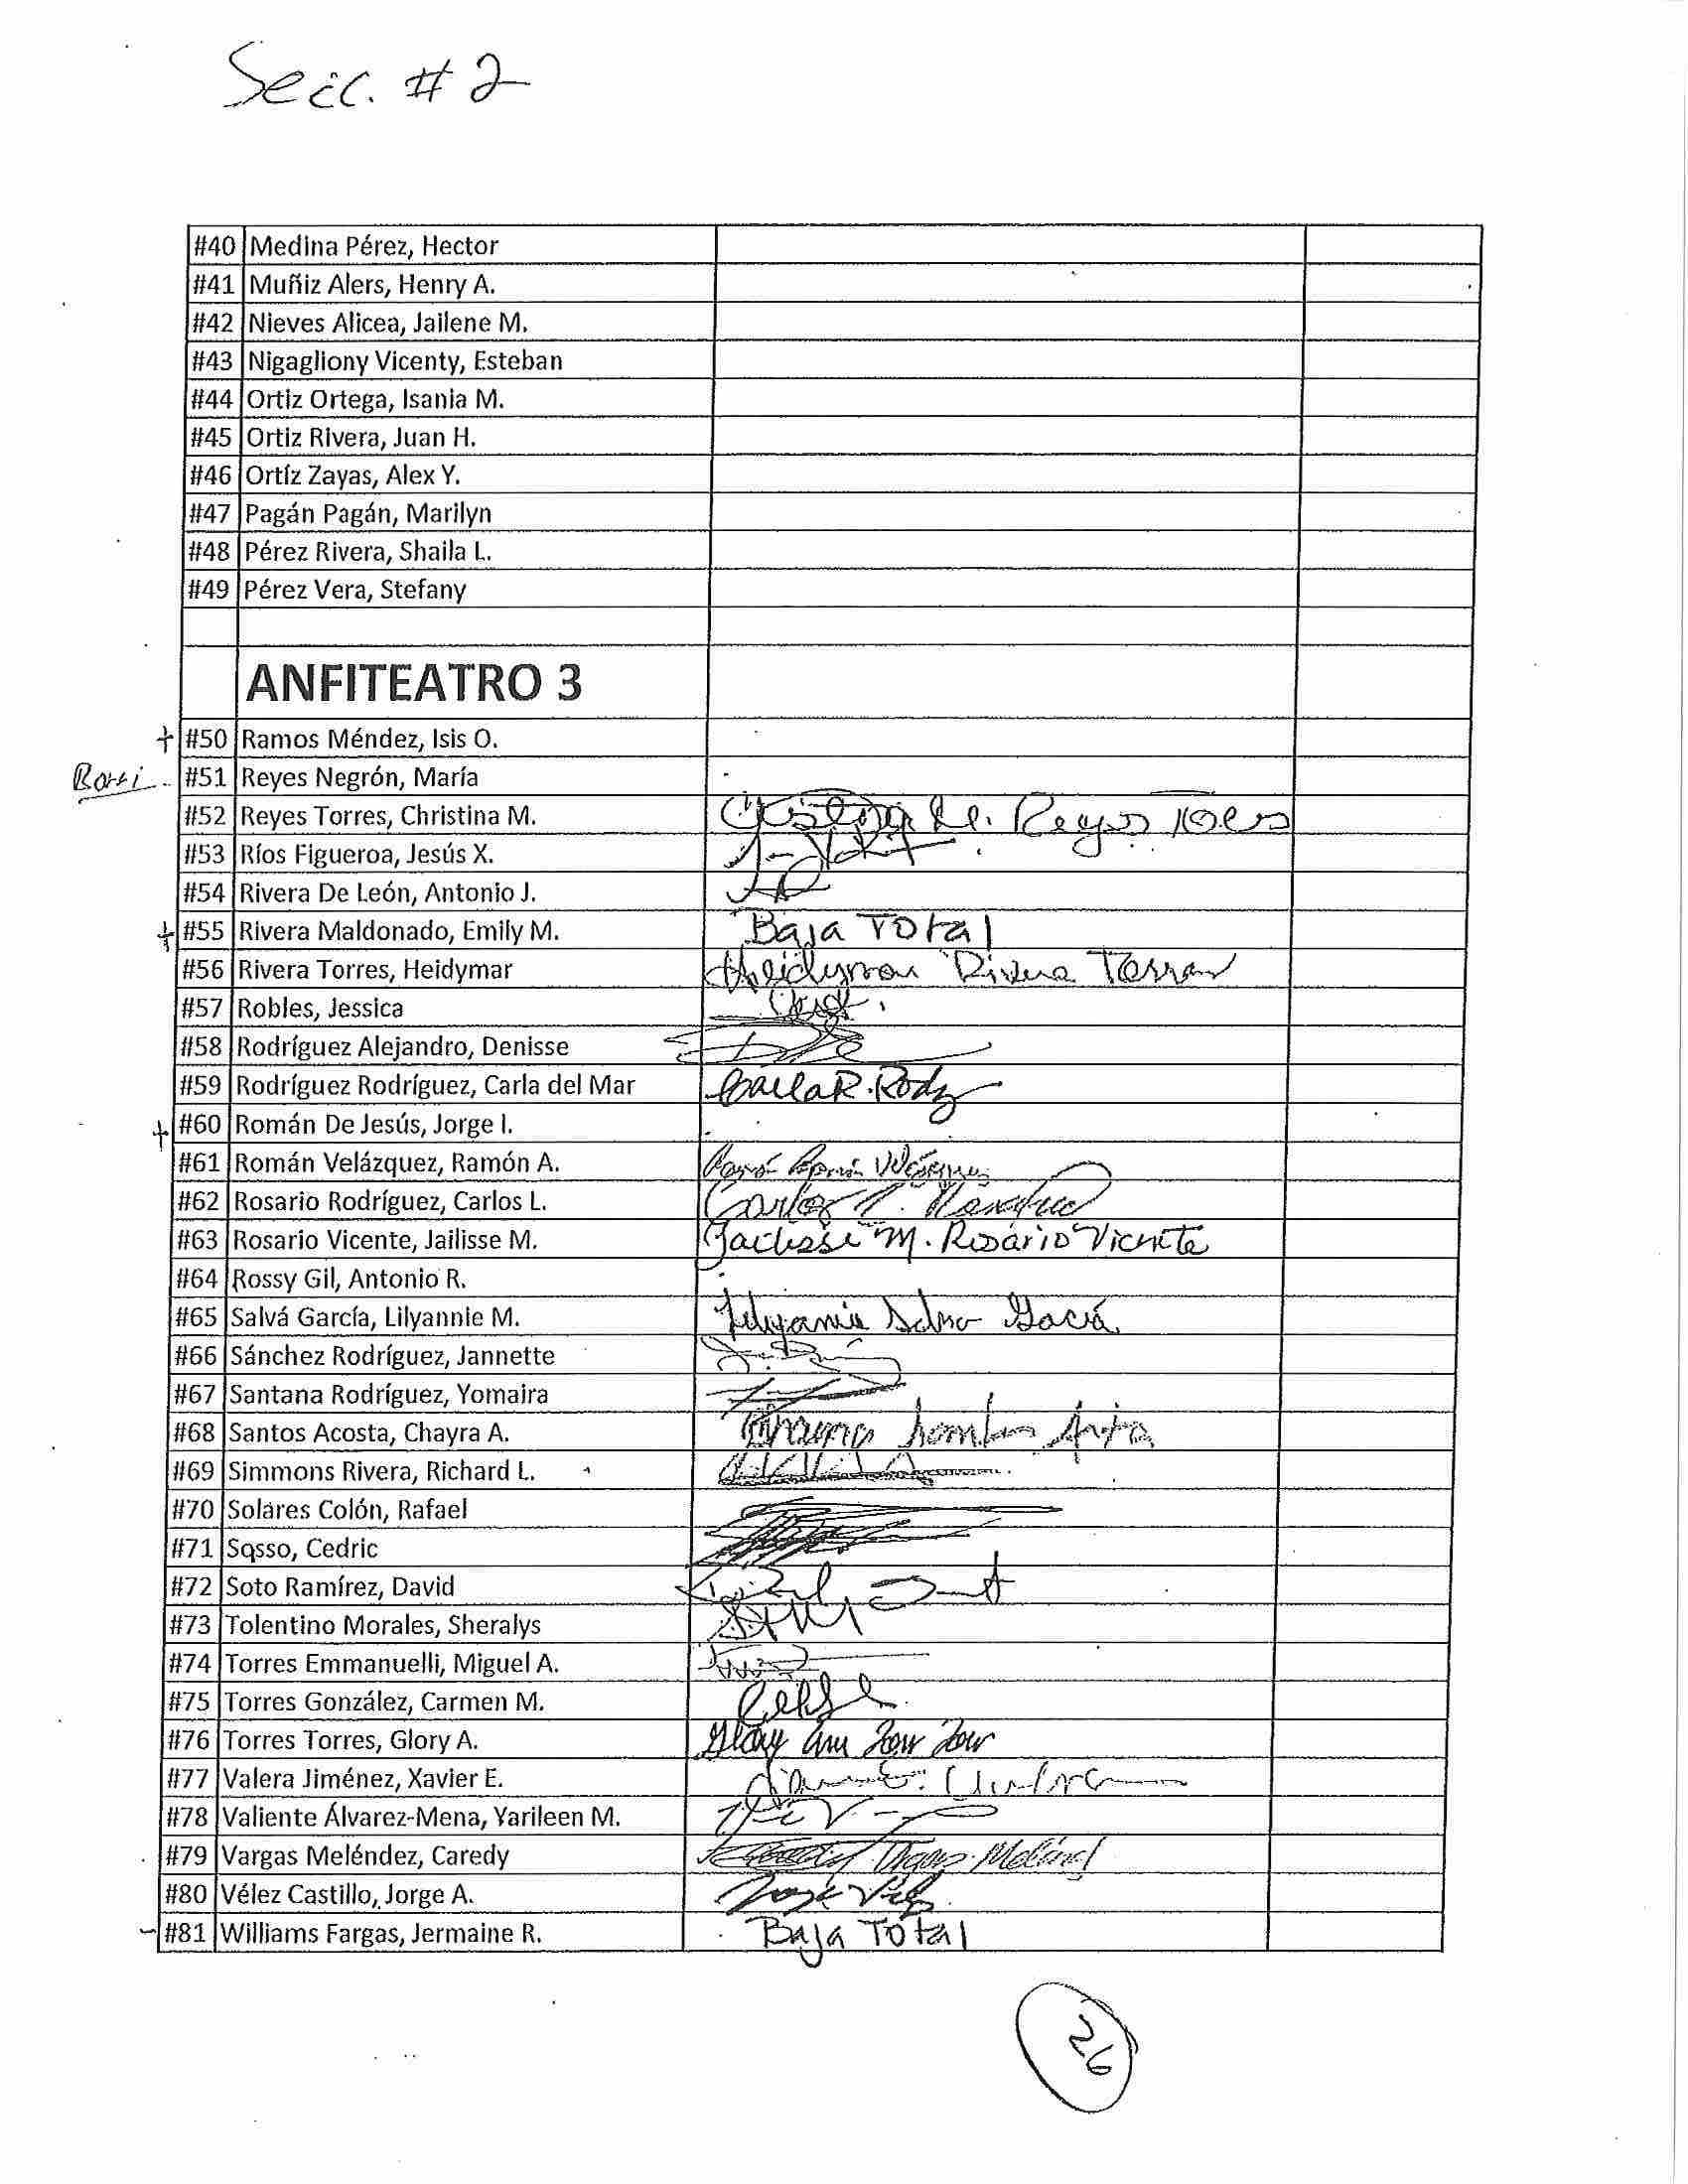 Secc. #2
#40 Medina Pérez, Hector
#41 Muñiz Alers, Henry A.
#42 Nieves Alicea, Jailene M.
#43 Nigagliony Vicenty, Esteban
#44 Ortiz Ortega, Isania M.
#45 Ortiz Rivera, Juan H.
#46 Ortíz Zayas, Alex Y.
#47 Pagán Pagán, Marilyn
#48 Pérez Rivera, Shaila L.
#49 Pérez Vera, Stefany
ANFITEATRO 3
+ #50 Ramos Méndez, Isis O.
#51 Reyes Negrón, María
#52 Reyes Torres, Christina M. M. Reyes Torres
#53 Ríos Figueroa, Jesús X.
#54 Rivera De León, Antonio J.
+ #55 Rivera Maldonado, Emily M. Baja Total
#56 Rivera Torres, Heidymar Heidymar Rivera Torres
#57 Robles, Jessica
#58 Rodríguez Alejandro, Denisse
#59 Rodríguez Rodríguez, Carla del Mar Carla R. Rodz
+ #60 Román De Jesús, Jorge I.
#61 Román Velázquez, Ramón A. Ramón Román Velázquez
#62 Rosario Rodríguez, Carlos L. Carlos
#63 Rosario Vicente, Jailisse M. Jailisse M. Rosario Vicente
#64 Rossy Gil, Antonio R.
#65 Salvá García, Lilyannie M. Lilyannie Salva García
#66 Sánchez Rodríguez, Jannette
#67 Santana Rodríguez, Yomaira
#68 Santos Acosta, Chayra A.
#69 Simmons Rivera, Richard L.
#70 Solares Colón, Rafael
#71 Sqsso, Cedric
#72 Soto Ramírez, David
#73 Tolentino Morales, Sheralys
#74 Torres Emmanuelli, Miguel A.
#75 Torres González, Carmen M.
#76 Torres Torres, Glory A. Glory Ann Torr Torr
#77 Valera Jiménez, Xavier E.
#78 Valiente Álvarez-Mena, Yarileen M.
#79 Vargas Meléndez, Caredy
#80 Vélez Castillo, Jorge A. Jorge Vélez
- #81 Williams Fargas, Jermaine R. Baja Total
26